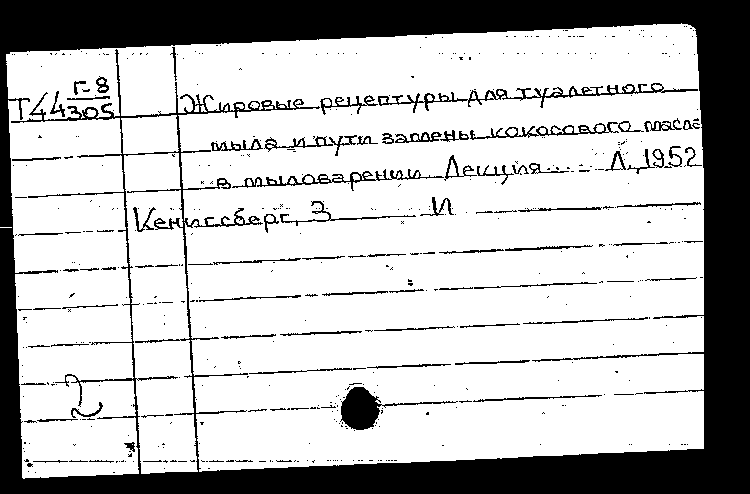 Г-8
Т44305 Жировые рецептуры для туалетного
мыла и пути замены кокосового масла
в мыловарении Лекция... - Л., 1952
Кенигсберг, З И
2